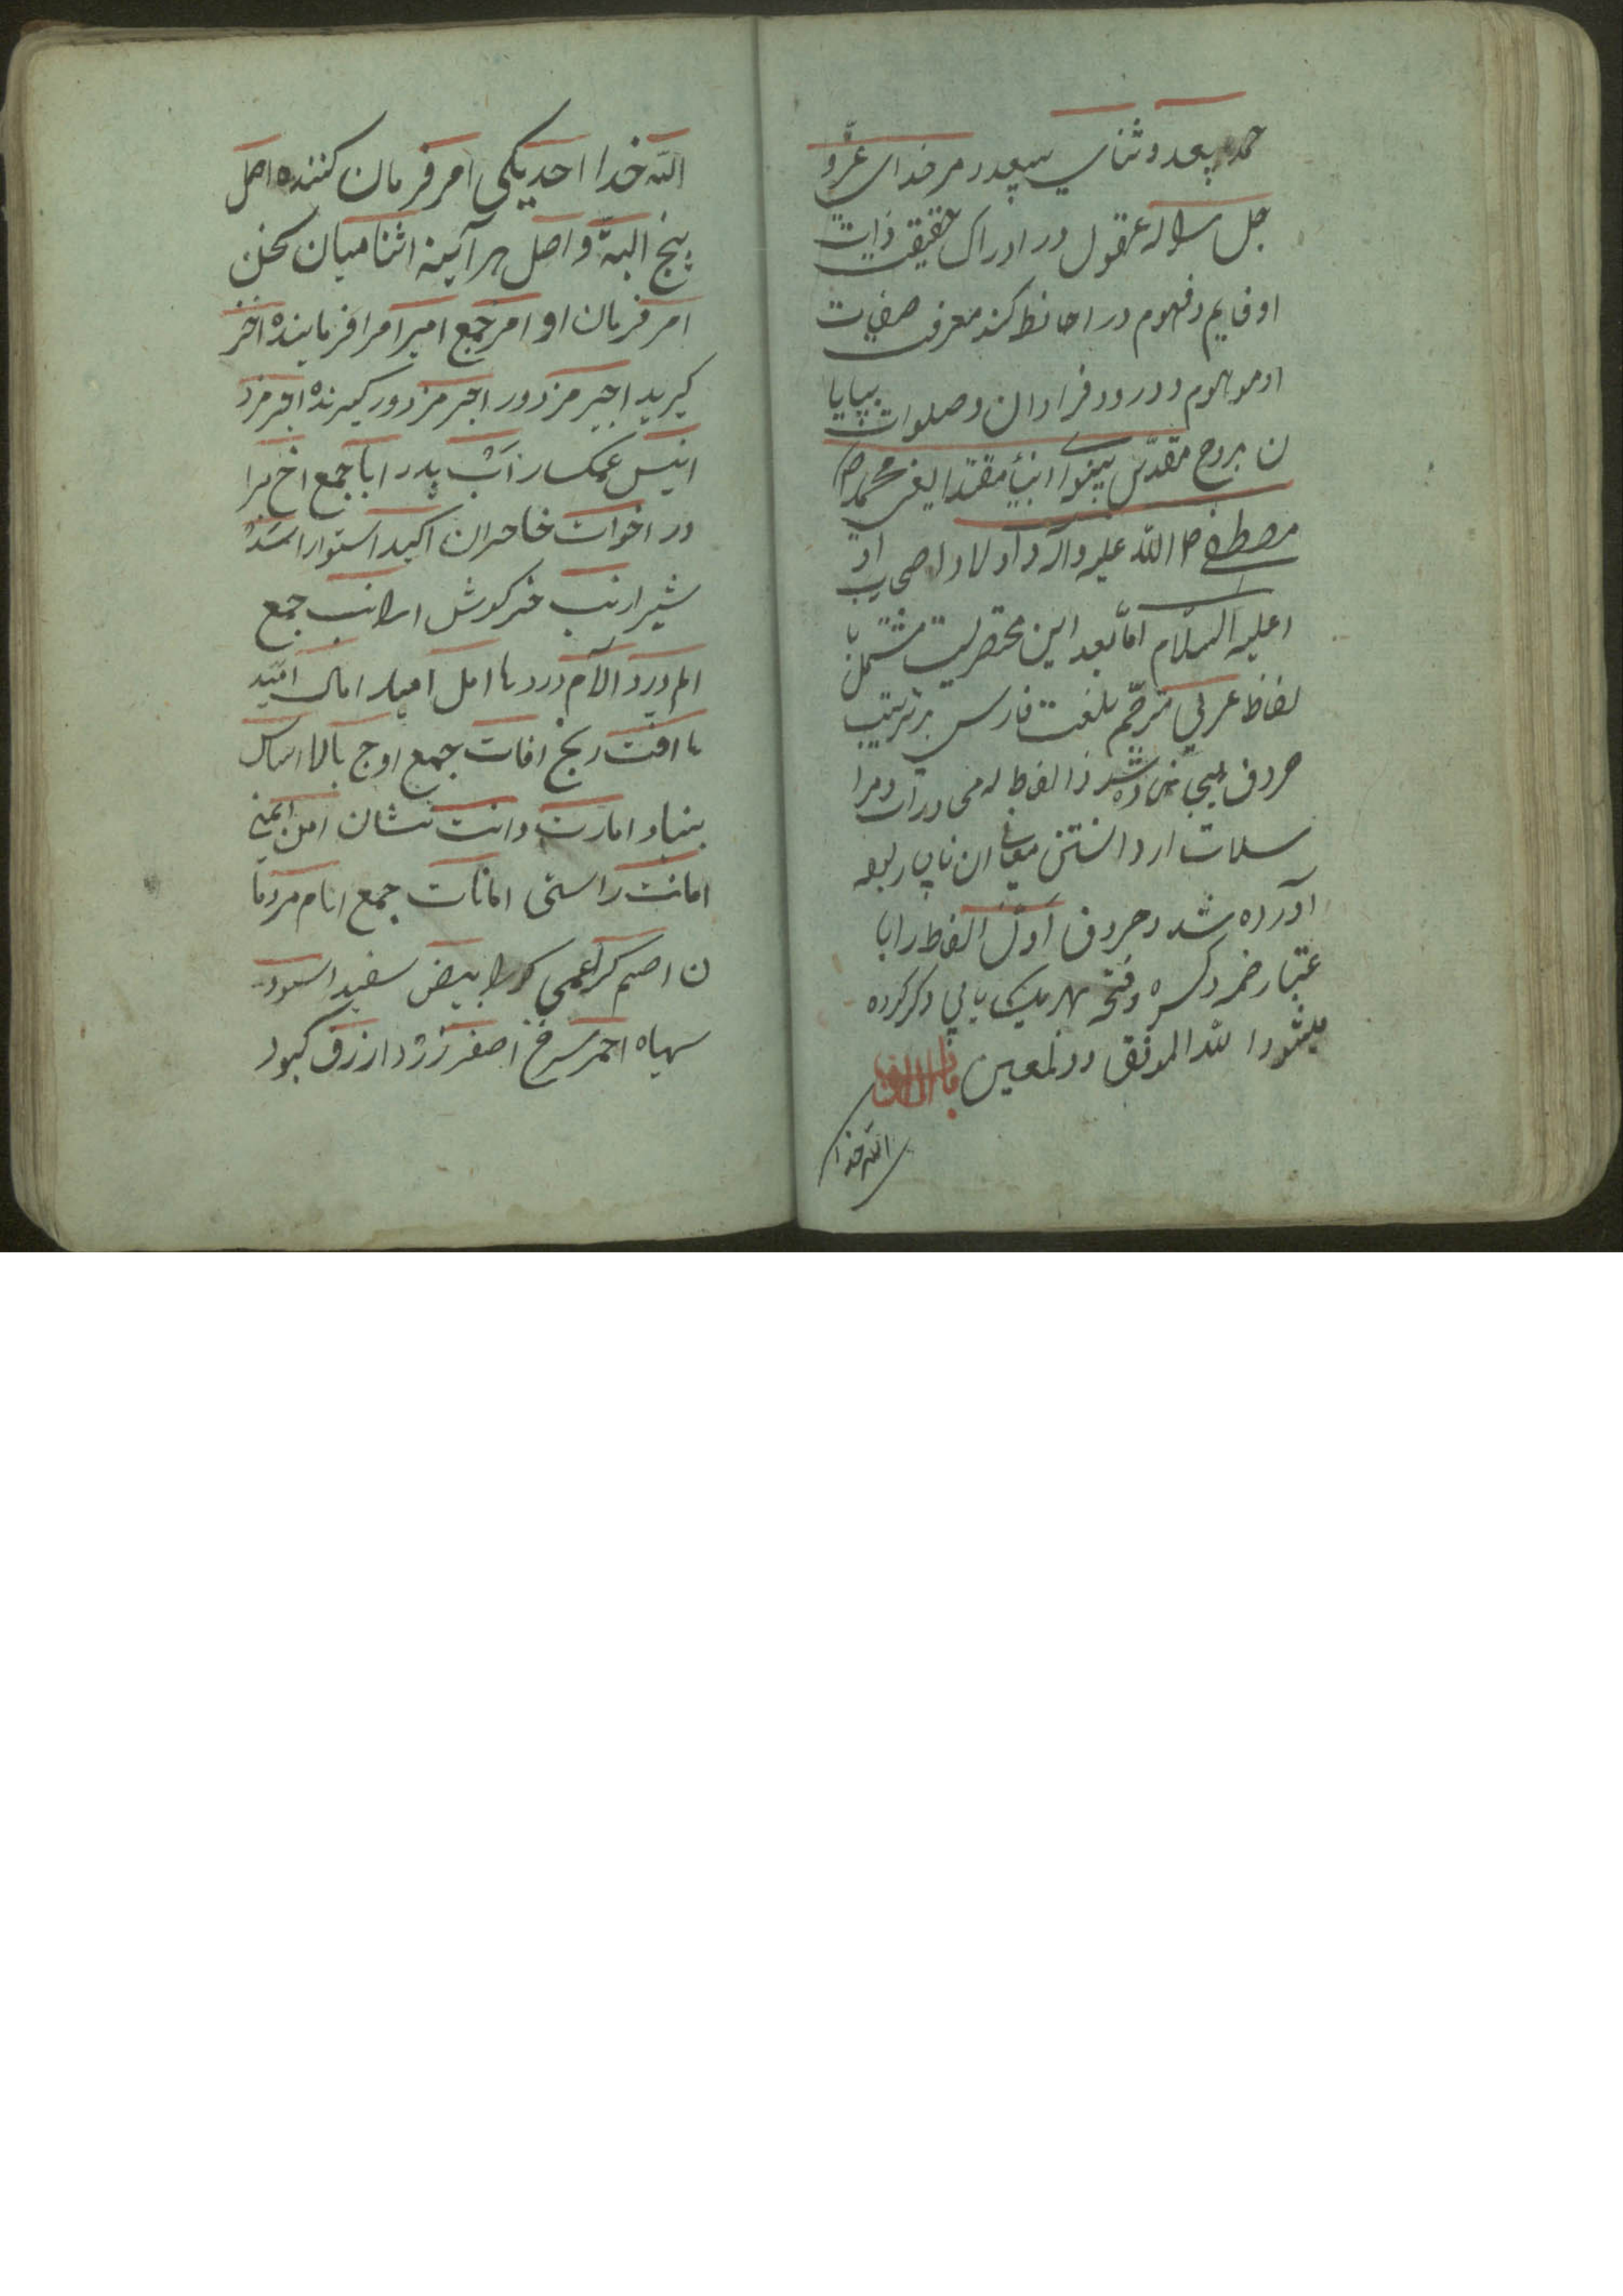 حمد بیعد و ثنای بیعدد مر خدای عزّ و
جل سلاله عقول در ادراک حقیقت ذات
او قایم و فهوم در احاطه کنه معرفت صفات
او موهوم و درود فراوان و صلوات بیپایا
ن بروح مقدّس پیشوا انبیا مقتدا یعنی محمد
مصطفی صلی الله علیه و آله و اولاد و اصحاب او
علیه السلام امّا بعد این مختصریست مشتمل با
لفاظ عربی مترجّم بلغت فارسی بر ترتیب
حروف تهجی نهاده شد و الفاظ که در محاورات و مرا
سلات از دانستن معانی ان ناچار بود
آورده شد و حروف اوّل الفاظ را با
عتبار ضمه و کسره و فتحه بهر یک بابی ذکر کرده
میشود الله الموفق والمعین باب الالف
الله خدا
الله خدا احد یکی امر فرمان کننده اصل
بیخ البته و اصل هر آینه اثنا میان سخن
امر فرمان اوامر جمع امیر امرا فرماینده اخذ
گیرید اجیر مزدور اجر مزد ورگیرنده اجر مزد
انیس غمکسار اب پدر ابا جمع اخ برا
در اخوات خاحران اکید استوار اسد
شیر ارنب خرکوش ارانب جمع
الم درد آلام دردها امل امید امال امید
ها افت رنج افات جمع اوج بالا اساس
بنیاد امارت دانت نشان امن ایمنی
امانت راستی امانات جمع انام مردما
ن اصم کر اعمی کور ابیض سفید اسود
سیاه احمر سرخ اصفر زرد ازرق کبود